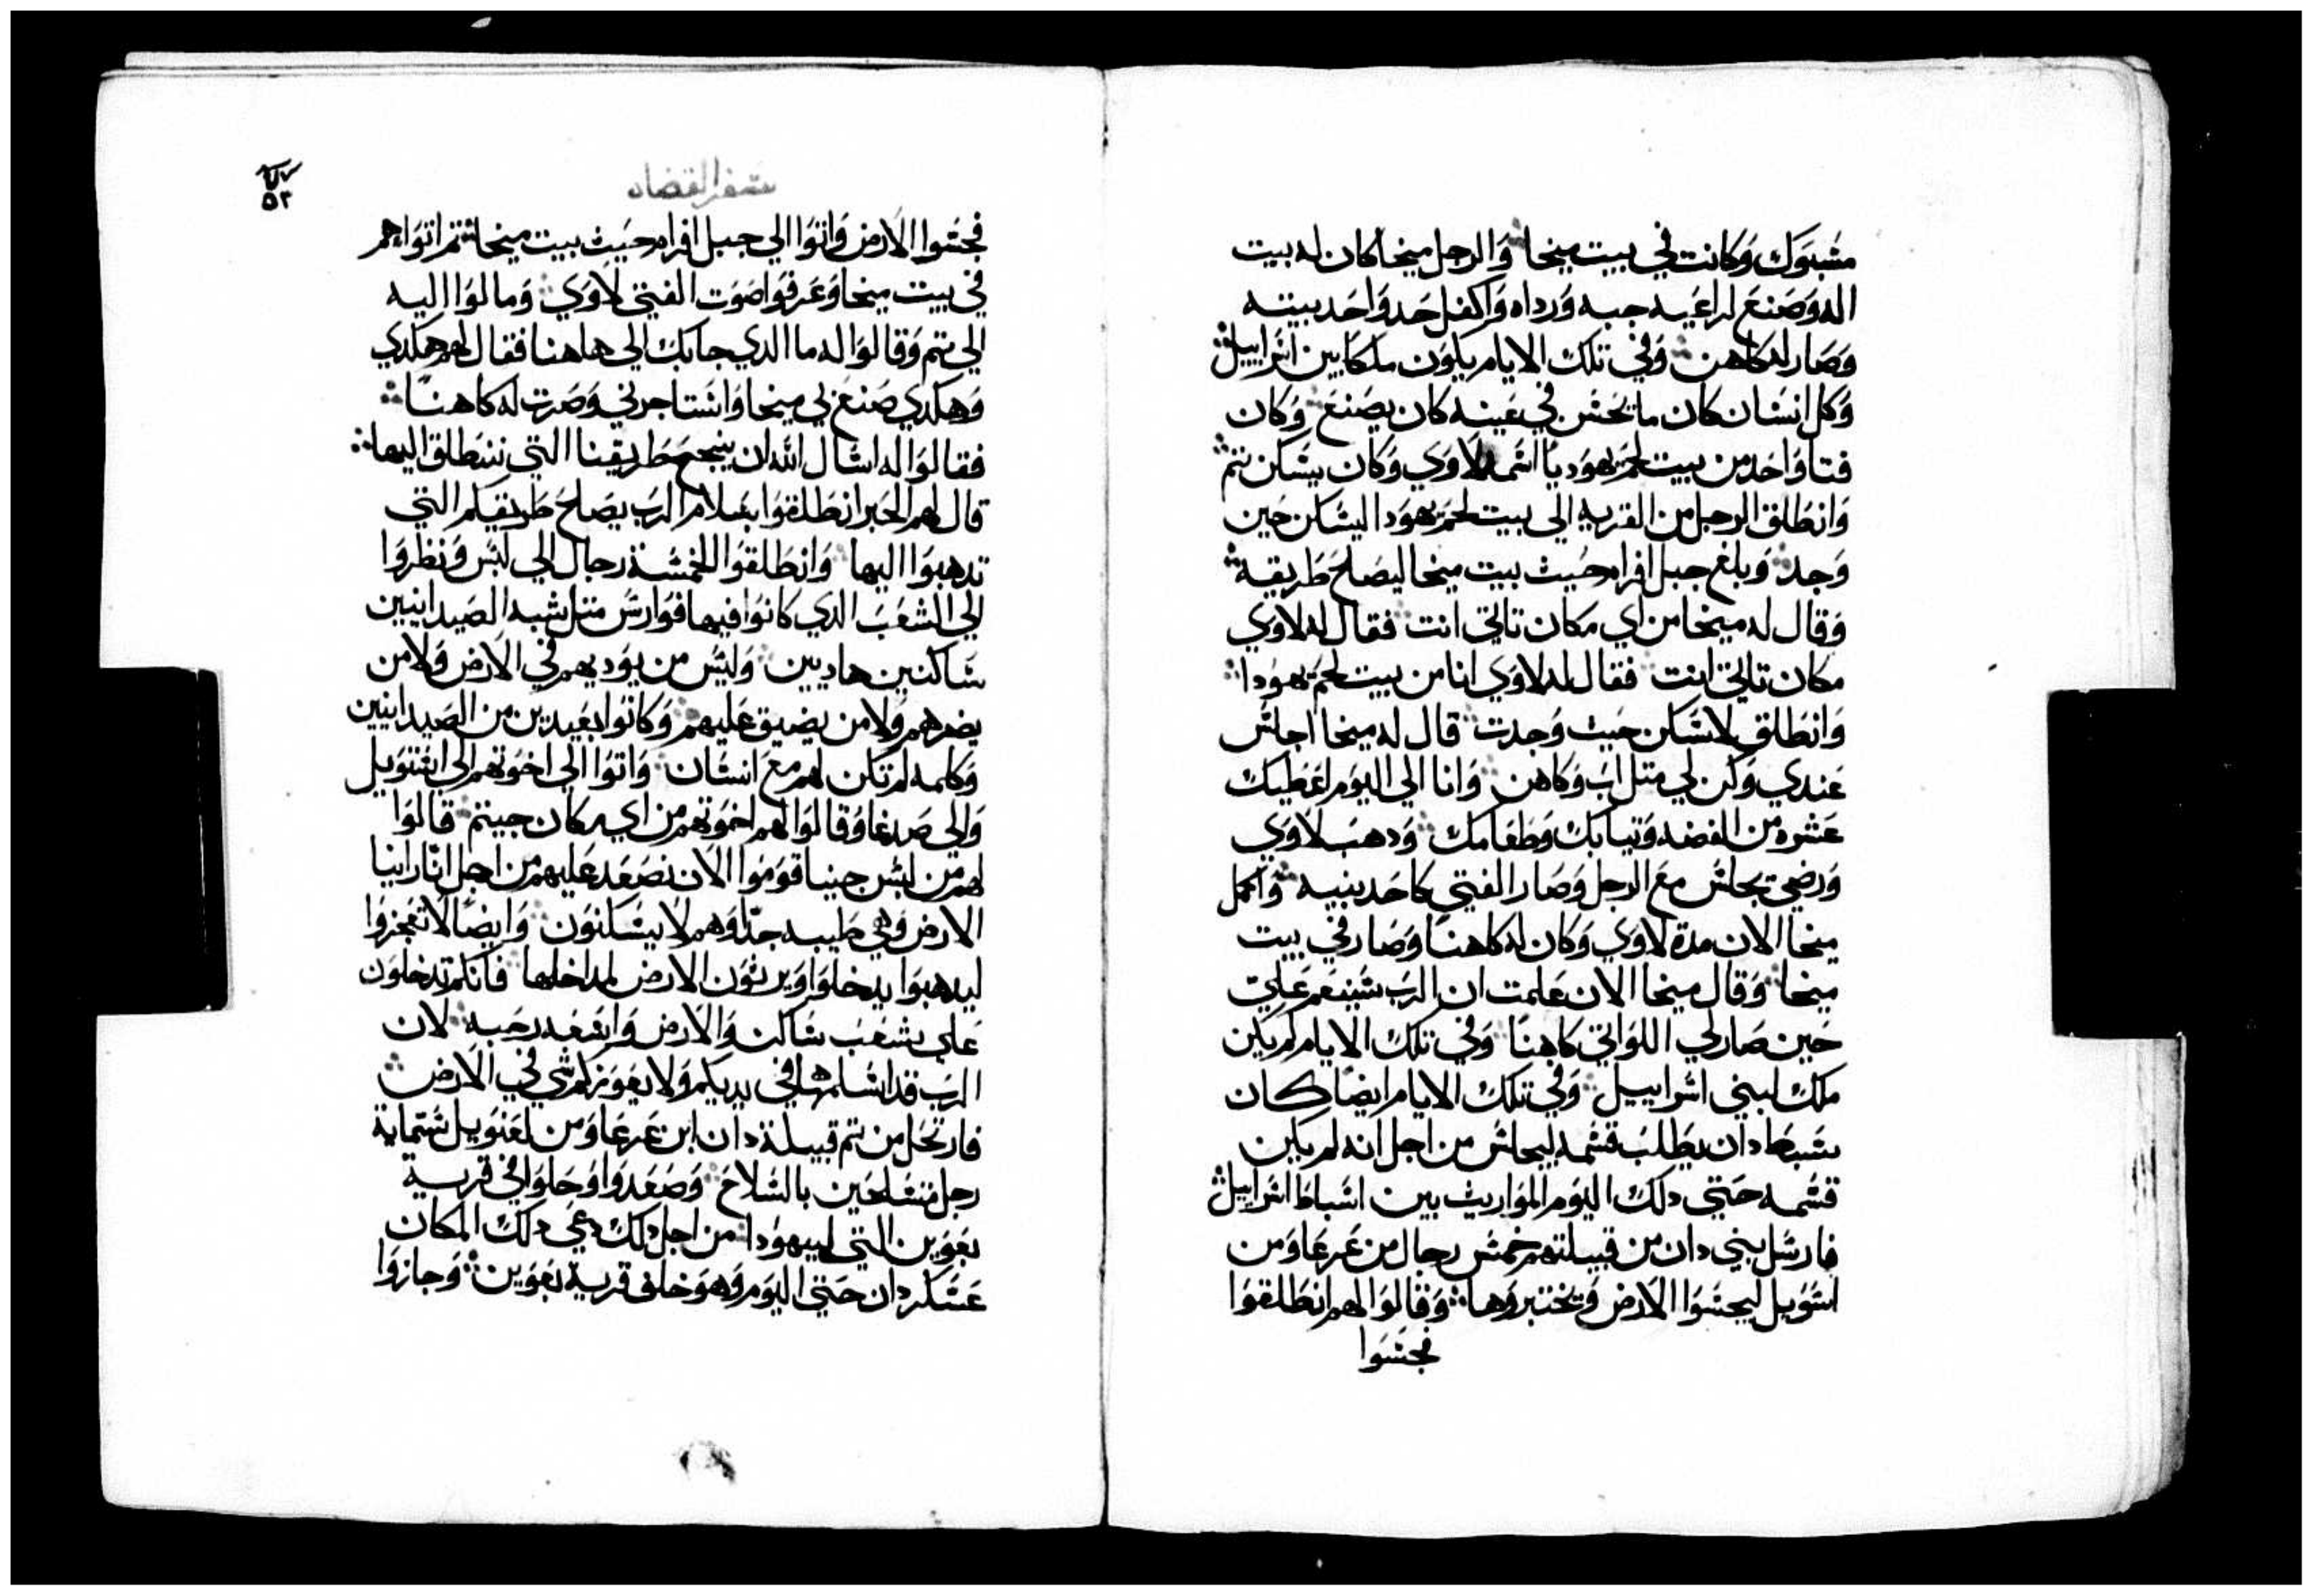 مسبوك وكانت في بيت ميخا والرجل ميخا كان له بيت
اله وصنع لراعيه جبه ورداه واكفل احد واحد بيته
وصار له كاهن وفي تلك الايام يكون ملكا بين اسراييل
وكل انسان كان ما يحسن في عينه كان يصنع وكان
فتا واحد من بيت لحم يهوديا اسمه لاوي وكان يسكن تم
وانطلق الرجل من القريه الى بيت لحم يهودا ليسكن حين
وجد وبلغ جبل افرام حيث بيت ميخا ليصلح طريقه
وقال له ميخا من اي مكان تاتي انت فقال له لاوي
مكان تاتي انت فقال له لاوي انا من بيت لحم يهودا
وانطلق لاسكن حيث وجدت قال له ميخا اجلس
عندي وكن لي متل اب وكاهن وانا الى اليوم اعطيك
عشره من الفضه وتيابك وطعامك ودهب لاوي
ورضي يجلس مع الرجل وصار الفتى كاحد بنيه واكمل
ميخا الان مدة لاوي وكان له كاهنا وصار في بيت
ميخا وقال ميخا الان علمت ان الرب سينعم علي
حين صار لي اللواني كاهنا وفي تلك الايام لم يكن
ملك لبني اسراييل وفي تلك الايام ايضا كان
سبط دان يطلب قسمه ليجلس من اجل انه لم يكن
قسمه حتى دلك اليوم المواريث بين اسباط اسراييل
فارسل بني دان من قبيلتهم خمس رجال من عرعا ومن
استويل ليجسوا الارض ويختبروها وقالوا لهم انطلقوا
فجسوا
سفر القضاه
٥٣
فجسوا الارض واتوا الى جبل افرام حيث بيت ميخا تم اتوا هم
في بيت ميخا وعرفوا صوت الفتى لاوي ومالوا اليه
الى تم وقالوا له ما الدي جابك الى هاهنا فقال لهم هكدي
وهكدي صنع لي ميخا واستاجرني وصرت له كاهنا
فقالوا له اسال الله ان ينجح طريقنا التي ننطلق اليها
قال لهم الحبر انطلقوا بسلام الرب يصلح طريقكم التي
تدهبوا اليها وانطلقوا الخمسة رجال الى لبس ونظروا
الى الشعب الدي كانوا فيها فوارس متل شبه الصيدانيين
ساكنين هاديين وليس من يوديهم في الارض ولا من
يضرهم ولا من يضيق عليهم وكانوا بعيدين من الصيدانيين
وكلمه لم تكن لهم مع انسان واتوا الى اخوتهم الى استويل
والى صدعا وقالوا لهم اخوتهم من اي مكان جيتم قالوا
لهم من لبس جينا قوموا الان نصعد عليهم من اجل انا راينا
الارض وهي طيبه جدا وهم لا يسكنون وايضا لا تعجزوا
ليدهبوا يدخلوا ويرثون الارض لمداخلها فانكم تدخلون
على شعب ساكن والارض واسعه رحبه لان
الرب قد اسلمها في يديكم ولا يعوزكم شي في الارض
فارتحل من تم قبيلة دان ابن عرعا ومن لعنويل ستماية
رجل متسلحين بالسلاح وصعدوا وحلوا في قرية
بعوين التي ليهودا من اجل دلك دعي دلك المكان
عسكر دان حتى اليوم وهو خلف قرية بعوين وجازوا